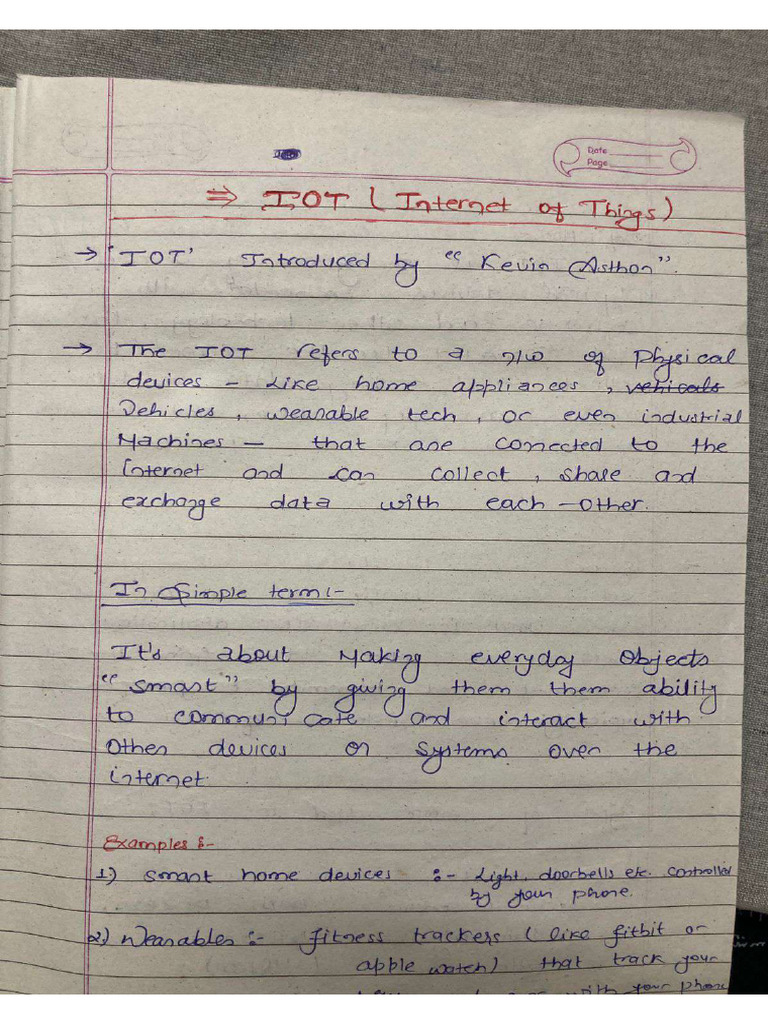 Date
Page
⇒ IOT ( Internet of Things)
→ 'IOT' Introduced by "Kevin Asthon".
→ The IOT refers to a n/w of Physical
devices – Like home appliances , vehicals
Vehicles , wearable tech , or even industrial
Machines – that are connected to the
Internet and can collect , share and
exchange data with each-other.
In Simple term :-
It's about Making everyday Objects
"smart" by giving them them ability
to communicate and interact with
Other devices or Systems over the
internet.
Examples :-
1) smart home devices :- Light, doorbells etc. controlled
by your phone.
2) Wearables :- fitness trackers ( like fitbit or
apple watch) that track your
with your phone